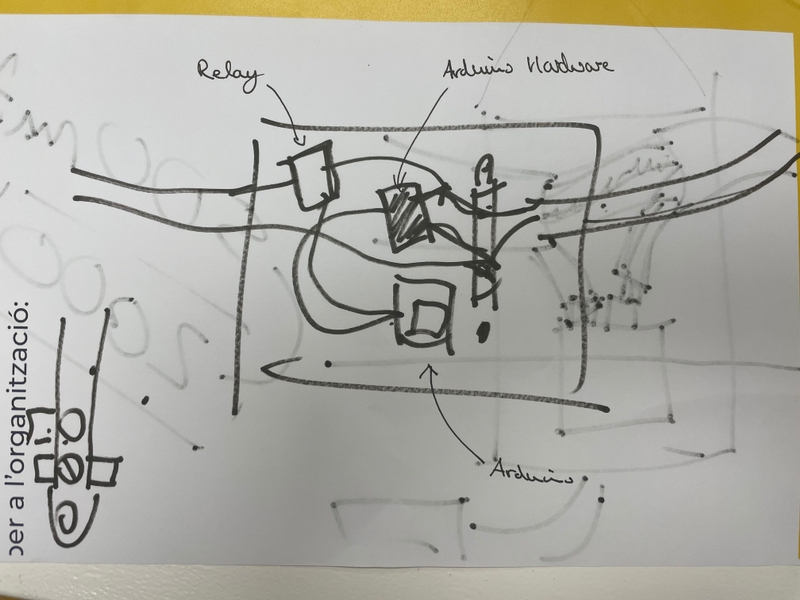 Relay
Arduino Hardware
Arduino
per a l'organització: